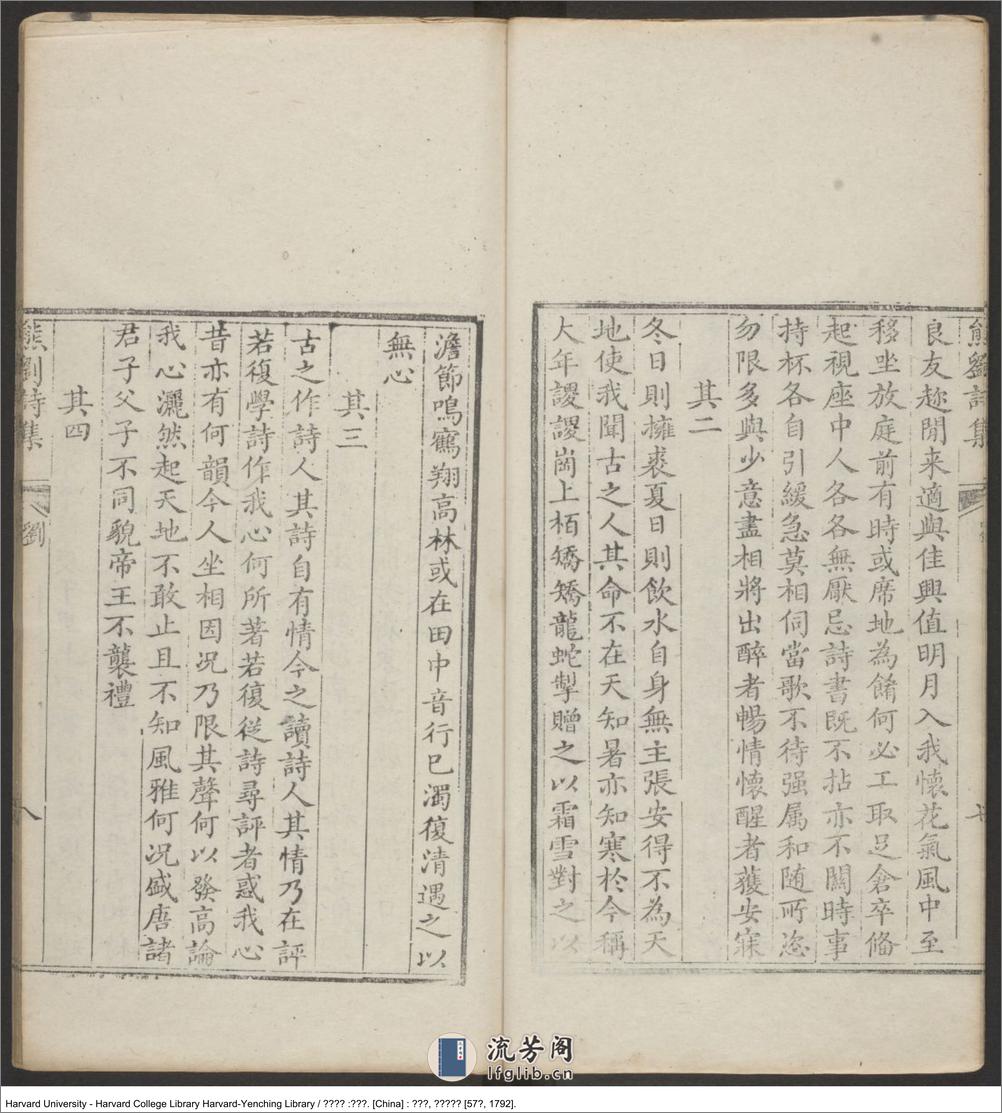 熊劉詩集
七
良友趂閒来適與佳興值明月入我懷花氣風中至
移坐放庭前有時或席地為餚何必工取足倉卒僃
起視座中人各各無厭忌詩書既不拈亦不關時事
持杯各自引緩急莫相伺當歌不待强属和随所恣
勿限多與少意盡相將出醉者暢情懷醒者獲安寐
其二
冬日則擁裘夏日則飲水自身無主張安得不為天
地使我聞古之人其命不在天知暑亦知寒於今稱
大年謖謖崗上栢矯矯龍蛇掣贈之以霜雪對之以
澹節鳴鶴翔高林或在田中音行已濁復清遇之以
無心
其三
古之作詩人其詩自有情今之讀詩人其情乃在評
若復學詩作我心何所著若復從詩尋評者惑我心
昔亦有何韻今人坐相因况乃限其聲何以發高論
我心灑然起天地不敢止且不知風雅何况盛唐諸
君子父子不同貌帝王不襲禮
其四
熊劉詩集
劉
八
流芳阁
lfglib.cn
Harvard University - Harvard College Library Harvard-Yenching Library / ???? :???. [China] : ???, ????? [57?, 1792].